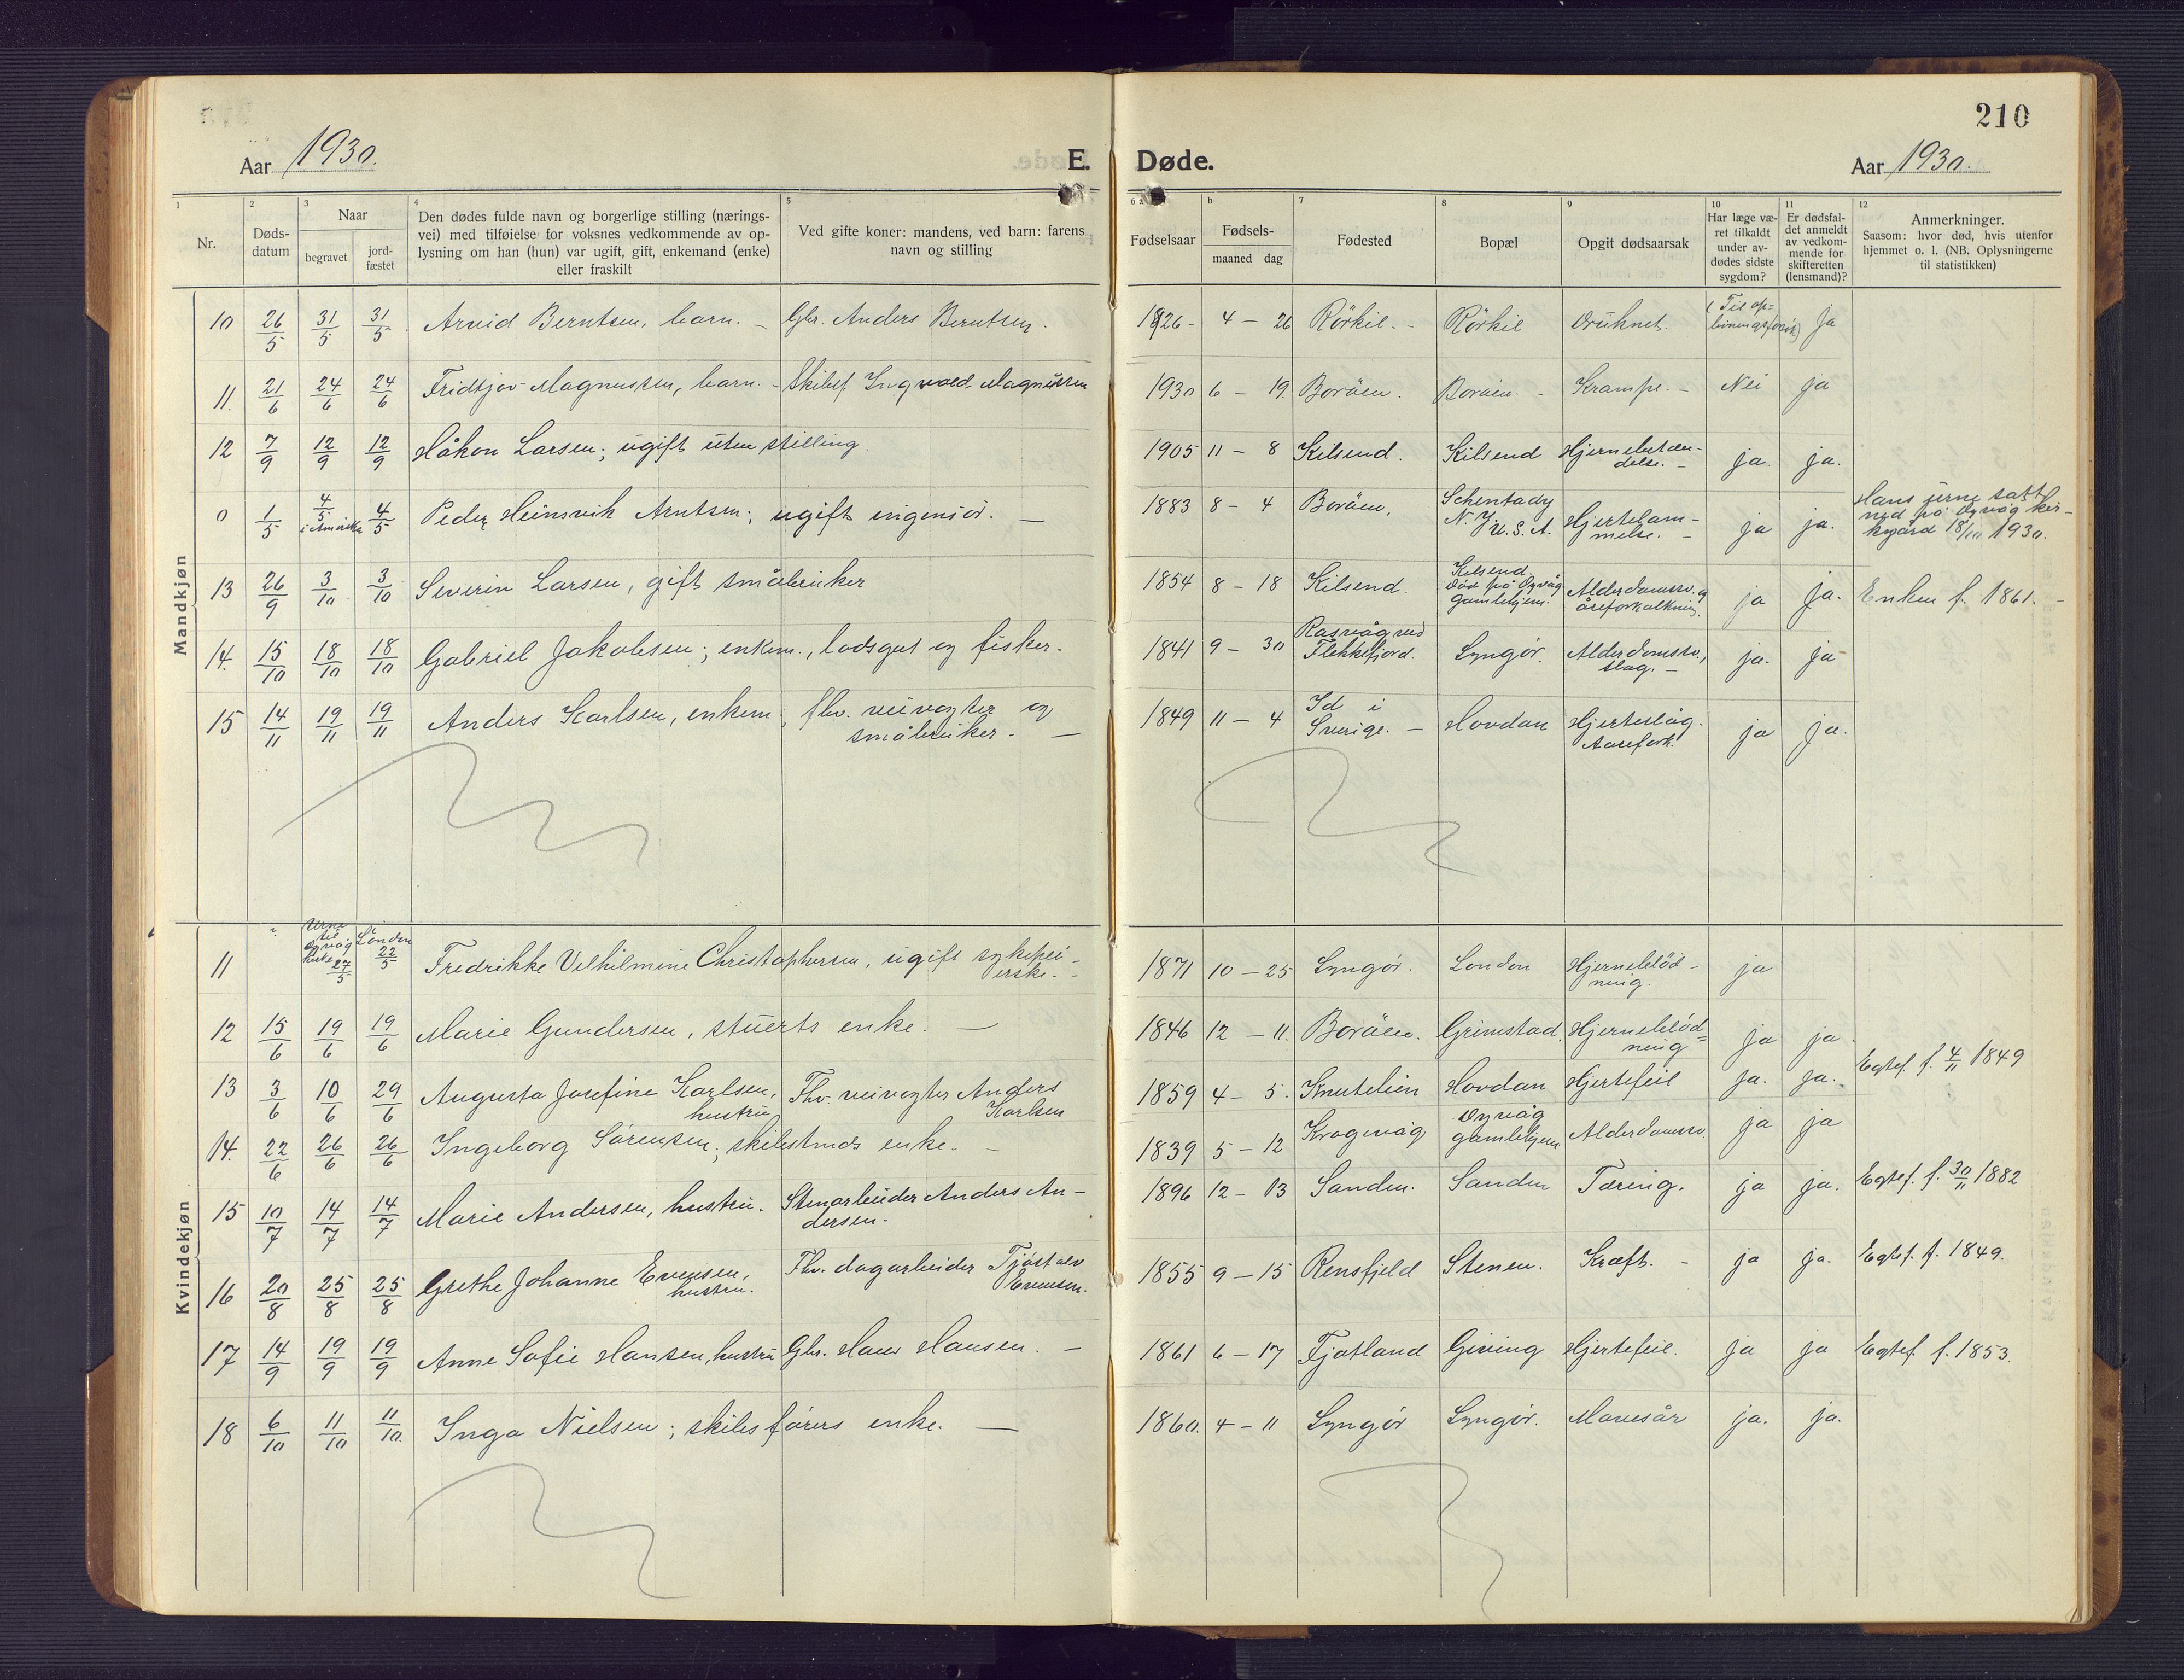 210
Aar 1930.
E. Døde.
Aar 1930.
1
2
3
4
5
6 a
b
7
8
9
10
11
12
Nr.
Døds-
datum
Naar
begravet
jord-
fæstet
Den dødes fulde navn og borgerlige stilling (nærings-
vei) med tilføielse for voksnes vedkommende av op-
lysning om han (hun) var ugift, gift, enkemand (enke)
eller fraskilt
Ved gifte koner: mandens, ved barn: farens
navn og stilling
Fødselsaar
Fødsels-
maaned dag
Fødested
Bopæl
Opgit dødsaarsak
Har læge væ-
ret tilkaldt
under av-
dødes sidste
sygdom?
Er dødsfal-
det anmeldt
av vedkom-
mende for
skifteretten
(lensmand)?
Anmerkninger.
Saasom: hvor død, hvis utenfor
hjemmet o. l. (NB. Oplysningerne
til statistikken)
Mandkjøn
10 26/5 31/5 31/5 Arvid Berntsen, barn. – Gbr. Anders Berntsen. 1926 - 4 – 26 Rörkil. - Rörkil Druknet. ja
11. 21/6 24/6 24/6 Fridtjov Magnussen, barn. - Skibsf. Ingvald Magnussen 1930 6 – 19. Boröen. Boröen. - Krampe. – Nei ja
12 7/9 12/9 12/9 Håkon Larsen; ugift uten stilling. 1905 11 – 8 Kilsend. Kilsend Hjernebetæn-
delse. – ja. ja.
0 1/5 4/5 i Amerika 4/5 Peder Heinsvik Arntsen; ugift ingeniör. — 1883 8 – 4 Boröen. Schentady
N. Y. U. S. A. Hjertelam-
melse. – ja ja. Hans urne satt
ned på Dyvåg kir-
kegård 18/10 1930.
13 26/9 3/10 3/10 Severin Larsen, gift småbruker 1854 8 – 18 Kilsend. Kilsend.
Död på Dyvåg
gamlehjem. Alderdomssv. og
åreforkalkning. ja ja. Enken f. 1861. –
14. 15/10 18/10 18/10 Gabriel Jakobsen; enkem., lodsgut og fisker. 1841 9 – 30 Rasvåg ved
Flekkefjord. Lyngör. Alderdomssv.,
slag. – ja. ja
15 14/11 19/11 19/11 Anders Karlsen, enkem, fhv. veivogter og
småbruker. – 1849 11 – 4 Id i
Sverige. – Hovdan Hjerteslag.
Aarefork. ja ja.
Kvindekjøn
11 Urne
til
Dyvåg
kirke 27/5 London 22/5 Fredrikke Vilhilmine Christophersen, ugift sykeplei-
erske. - 1871 10 – 25 Lyngör. London Hjerneblöd-
ning. ja
12 15/6 19/6 19/6 Marie Gundersen, stuerts enke. — 1846 12 – 11. Boröen. Grimstad. Hjerneblöd=
ning ja ja
13 3/6 10/6 29/6 Augusta Josefine Karlsen,
hustru Fhv. veivogter Anders
Karlsen 1859 4 – 5. Knutelien Hovdan Hjertefeil ja. ja. Egtef. f. 4/11 1849
14. 22/6 26/6 26/6 Ingeborg Sörensen; skibstmds enke. – 1839 5 – 12 Krogevåg Dyvåg
gamlehjem Alderdomssv. ja ja
15 10/7 14/7 14/7 Marie Andersen, hustru. Stenarbeider Anders An-
dersen. 1896 12 – 13 Sanden. Sanden Tæring. ja ja. Egtef. f. 30/11 1882
16 20/8 25/8 25/8 Grethe Johanne Evensen,
hustru. Fhv. dagarbeider Tjöstolv
Evensen. 1855 9 – 15 Rensfjeld Stenen. Kræft. - ja ja. Egtef. f. 1849.
17 14/9 19/9 19/9 Anne Sofie Hansen, hustru Gbr. Hans Hansen. – 1861 6 – 17 Fjotland Giving Hjertefeil. ja ja Egtef. f. 1853.
18 6/10 11/10 11/10 Inga Nielsen; skibsförers enke. — 1860. 4 – 11 Lyngör Lyngör. Mavesår ja. ja.